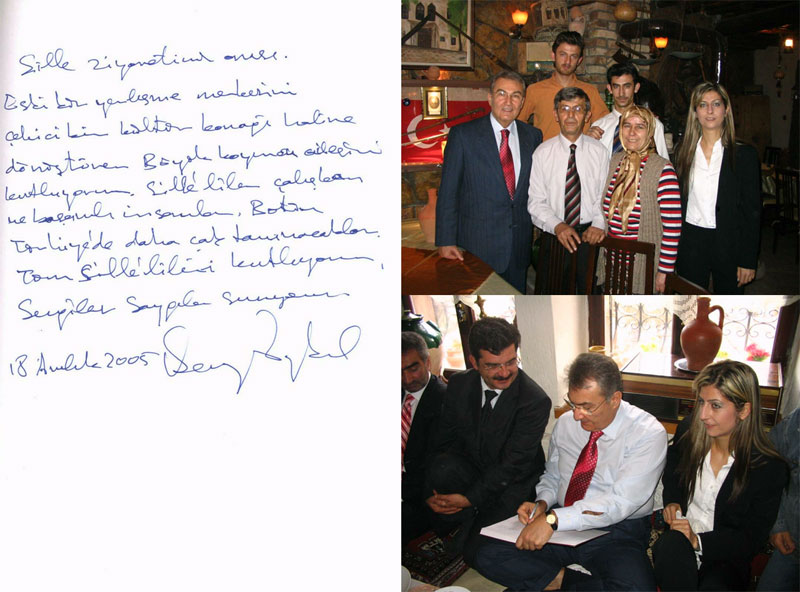 Sille ziyaretimiz onur.
Eski bir yerleşme merkezini
çekici bir kültür konağı haline
dönüştüren Büyük kaymak ailesini
kutluyorum. Sille'liler çalışkan
ve başarılı insanlar. Bütün
Türkiye'de daha çok tanınacaklar.
Tüm Sille'lileri kutluyorum,
Sevgiler saygılar sunuyorum
18 Aralık 2005 Deniz Baykal